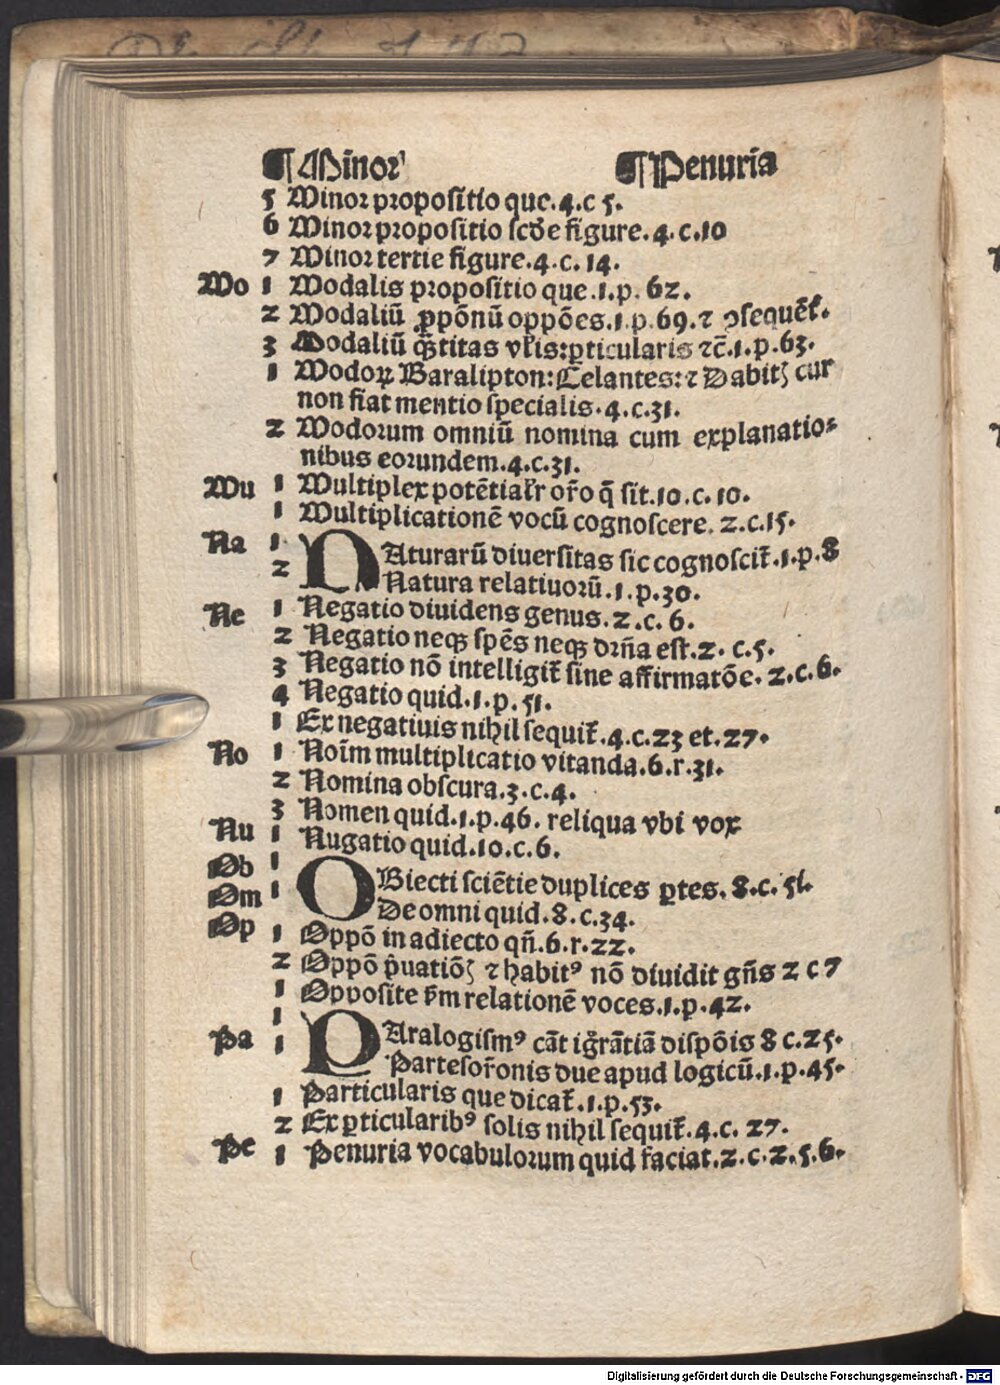 ¶ Minor ¶ Penuria
5 Minor propositio que.4.c 5.
6 Minor propositio scd̄e figure.4.c.10
7 Minor tertie figure.4.c.14.
Mo 1 Modalis propositio que.1.p.62.
2 Modaliū ꝓpōnū oppōes.1.p.69.⁊ ꝯsequēt̄.
3 Modaliū q̄titas vl̄is:ꝑticularis ⁊c̄.1.p.63.
1 Modoꝝ Baralipton:Celantes:⁊ Dabitꝫ cur
non fiat mentio specialis.4.c.31.
2 Modorum omniū nomina cum explanatio⸗
nibus eorundem.4.c.31.
Mu 1 Multiplex potētial̄r or̄o q̄ sit.10.c.10.
1 Multiplicationē vocū cognoscere.2.c.15.
Na 1 NAturarū diuersitas sic cognoscit̄.1.p.8
2 Natura relatiuorū.1.p.30.
Ne 1 Negatio diuidens genus.2.c.6.
2 Negatio neqꝫ spēs neqꝫ drn̄a est.2.c.5.
3 Negatio nō intelligit̄ sine affirmatōe.2.c.6.
4 Negatio quid.1.p.51.
1 Ex negatiuis nihil sequit̄.4.c.23 et.27.
No 1 Noīm multiplicatio vitanda.6.r.31.
2 Nomina obscura.3.c.4.
3 Nomen quid.1.p.46. reliqua vbi vox
Nu 1 Nugatio quid.10.c.6.
Ob 1 OBiecti sciētie duplices ꝑtes.8.c.51.
Om 1 De omni quid.8.c.34.
Op 1 Oppō in adiecto qn̄.6.r.22.
2 Oppō p̄uatiōꝫ ⁊ habitꝰ nō diuidit gn̄s 2 c 7
1 Opposite s̄m relationē voces.1.p.42.
1 PAralogismꝰ cāt igr̄ātiā dispōis 8 c.25.
Pa 1 Partes or̄onis due apud logicū.1.p.45.
1 Particularis que dicat̄.1.p.53.
2 Ex ꝑticularibꝰ solis nihil sequit̄.4.c.27.
Pe 1 Penuria vocabulorum quid faciat.2.c.2.5.6.
Digitalisierung gefördert durch die Deutsche Forschungsgemeinschaft - DFG